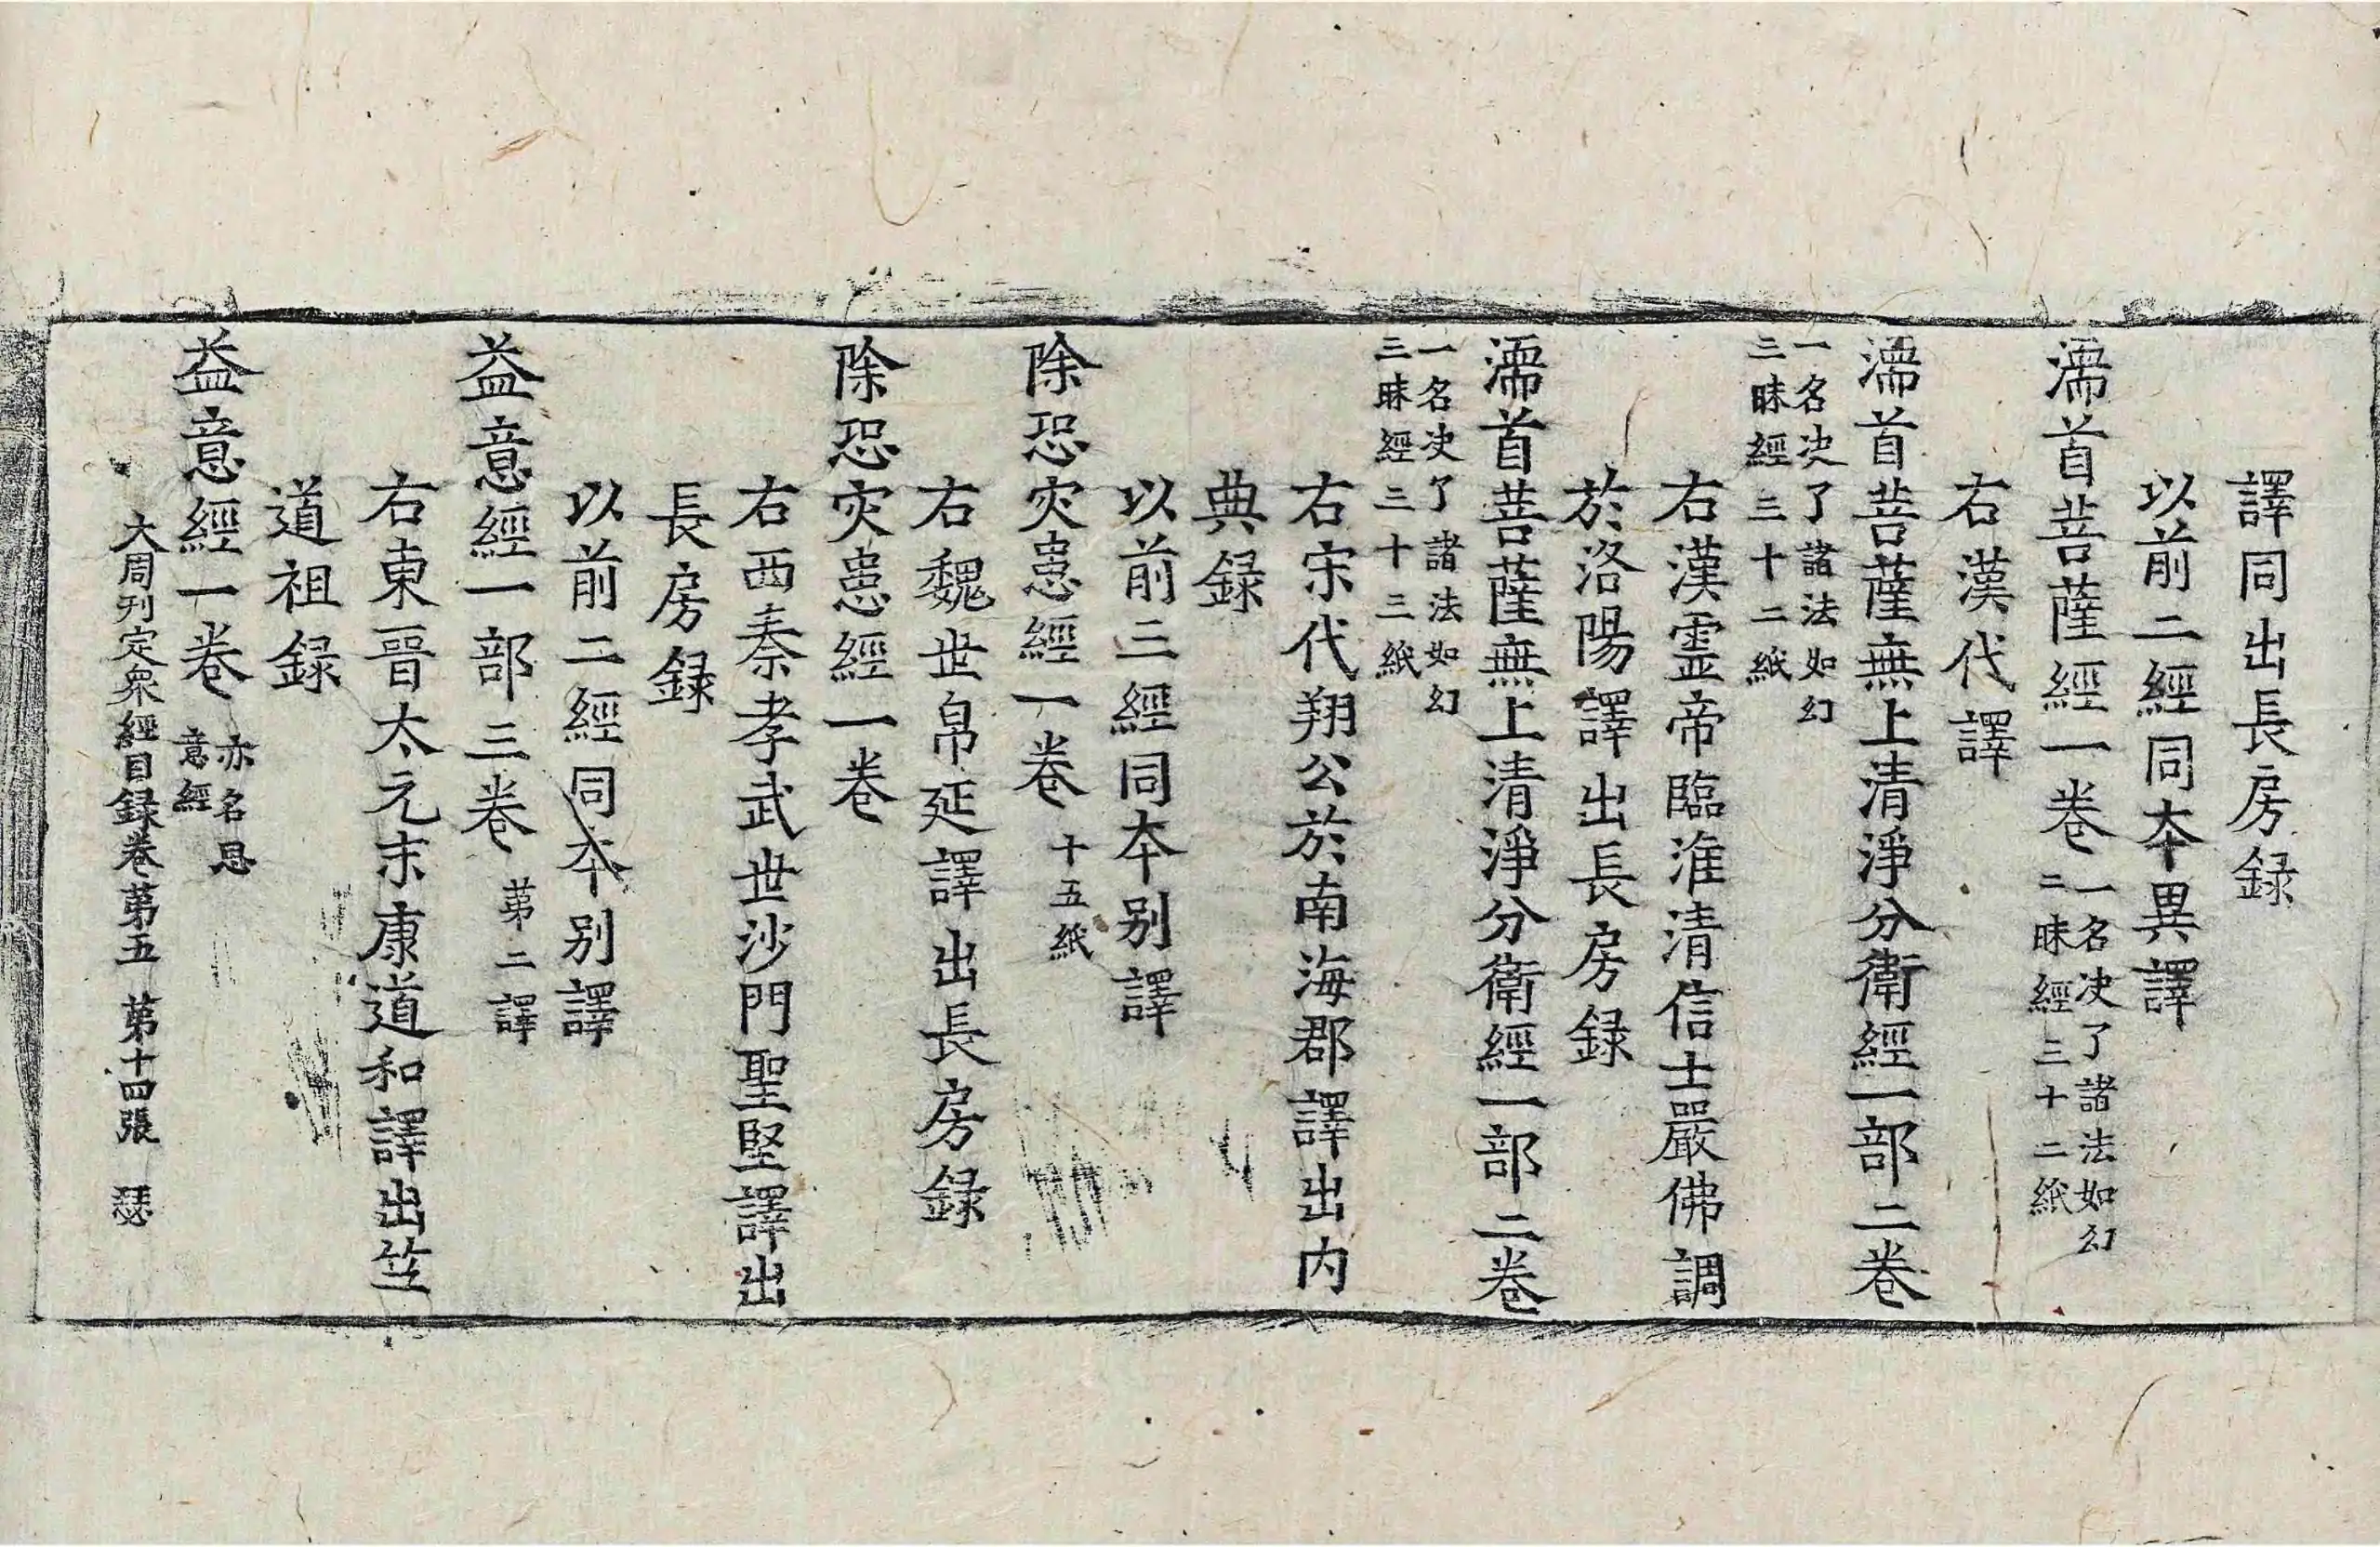 譯同出長房録
以前二經同本異譯
濡首菩薩經一卷一名决了諸法如幻
二昧經三十二紙
右漢代譯
濡首菩薩無上清淨分衛經一部二卷
一名决了諸法如幻
三昧經三十二紙
右漢霊帝臨淮清信士嚴佛調
於洛陽譯出長房録
濡首菩薩無上清淨分衛經一部二卷
一名决了諸法如幻
三昧經三十三紙
右宋代翔公於南海郡譯出内
典録
以前三經同本别譯
除恐灾患經一卷十五紙
右魏世帛延譯出長房録
除恐灾患經一卷
右西秦孝武世沙門聖堅譯出
長房録
以前二經同本别譯
益意經一部三卷第二譯
右東晉太元末康道和譯出竺
道祖録
益意經一卷亦名恩
意經
大周刊定衆經目録卷第五 第十四張 瑟